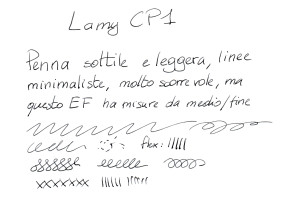 Lamy CP1
Penna sottile e leggera, linee
minimaliste, molto scorrevole, ma
questo EF ha misure da medio/fine
flex: